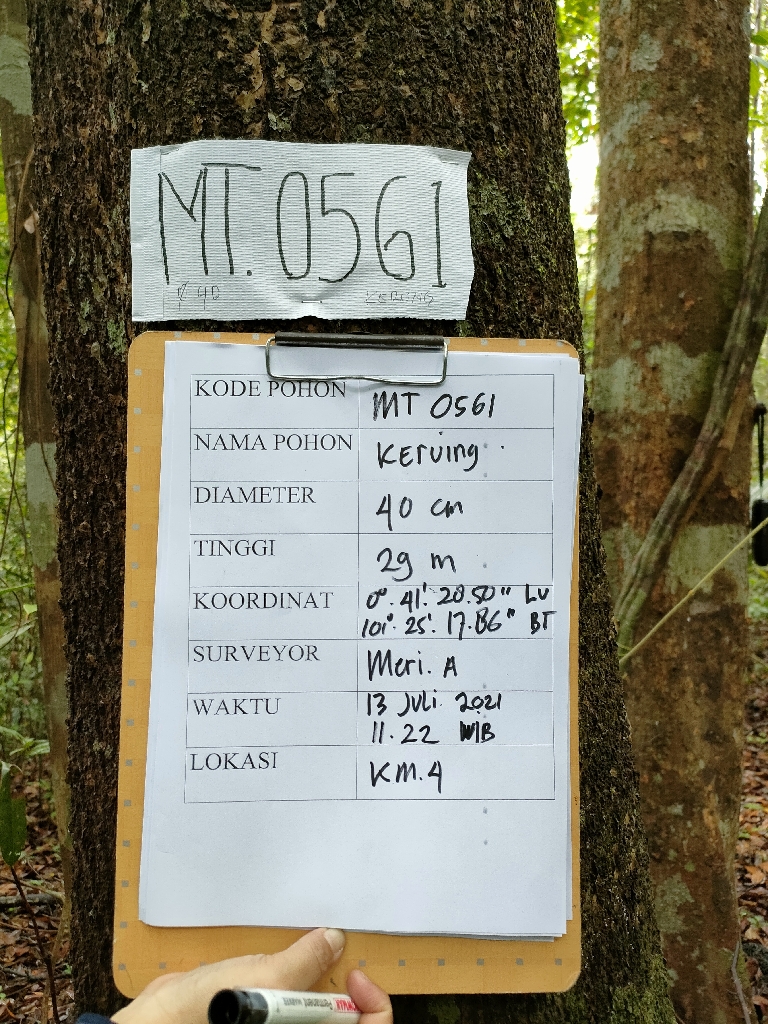 MT. 0561
KODE POHON MT 0561
NAMA POHON Keruing
DIAMETER 40 cm
TINGGI 29 m
KOORDINAT 0°. 41'. 20.50" LU
101°. 25'. 17.86" BT
SURVEYOR Meri. A
WAKTU 13 Juli 2021
11.22 WIB
LOKASI KM.4
PERMANENT